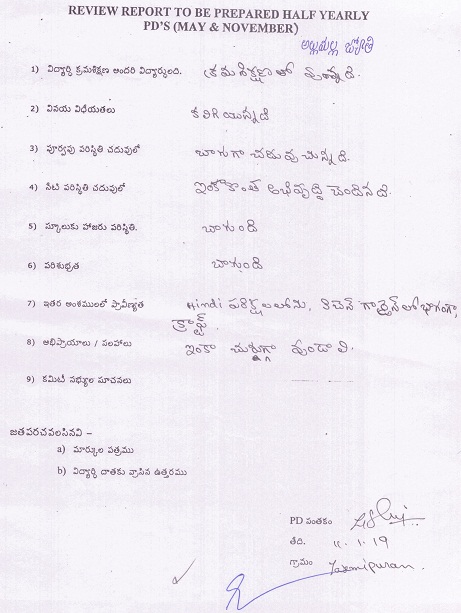 REVIEW REPORT TO BE PREPARED HALF YEARLY
PD'S (MAY & NOVEMBER)
జ్యోతి
1) విద్యార్థి క్రమశిక్షణ అందరి విద్యార్థులది. క్రమశిక్షణతో వున్నది.
2) వినయ విధేయతలు కలిగియున్నది
3) పూర్వపు పరిస్థితి చదువులో బాగుగా చదువుచున్నది.
4) నేటి పరిస్థితి చదువులో ఇంకొంత అభివృద్ధి చెందినది.
5) స్కూలుకు హాజరు పరిస్థితి. బాగుంది
6) పరిశుభ్రత బాగుంది
7) ఇతర అంశములలో ప్రావీణ్యత Hindi పరీక్షలలోను, కిచెన్ గార్డెన్‌లో భాగంగా,
క్రాఫ్ట్.
8) అభిప్రాయాలు / సలహాలు ఇంకా చురుగ్గా వుండాలి.
9) కమిటీ సభ్యుల సూచనలు
జతపరచవలసినవి –
a) మార్కుల పత్రము
b) విద్యార్థి దాతకు వ్రాసిన ఉత్తరము
PD సంతకం
తేది. 11.1.19
గ్రామం Laxmipuram.